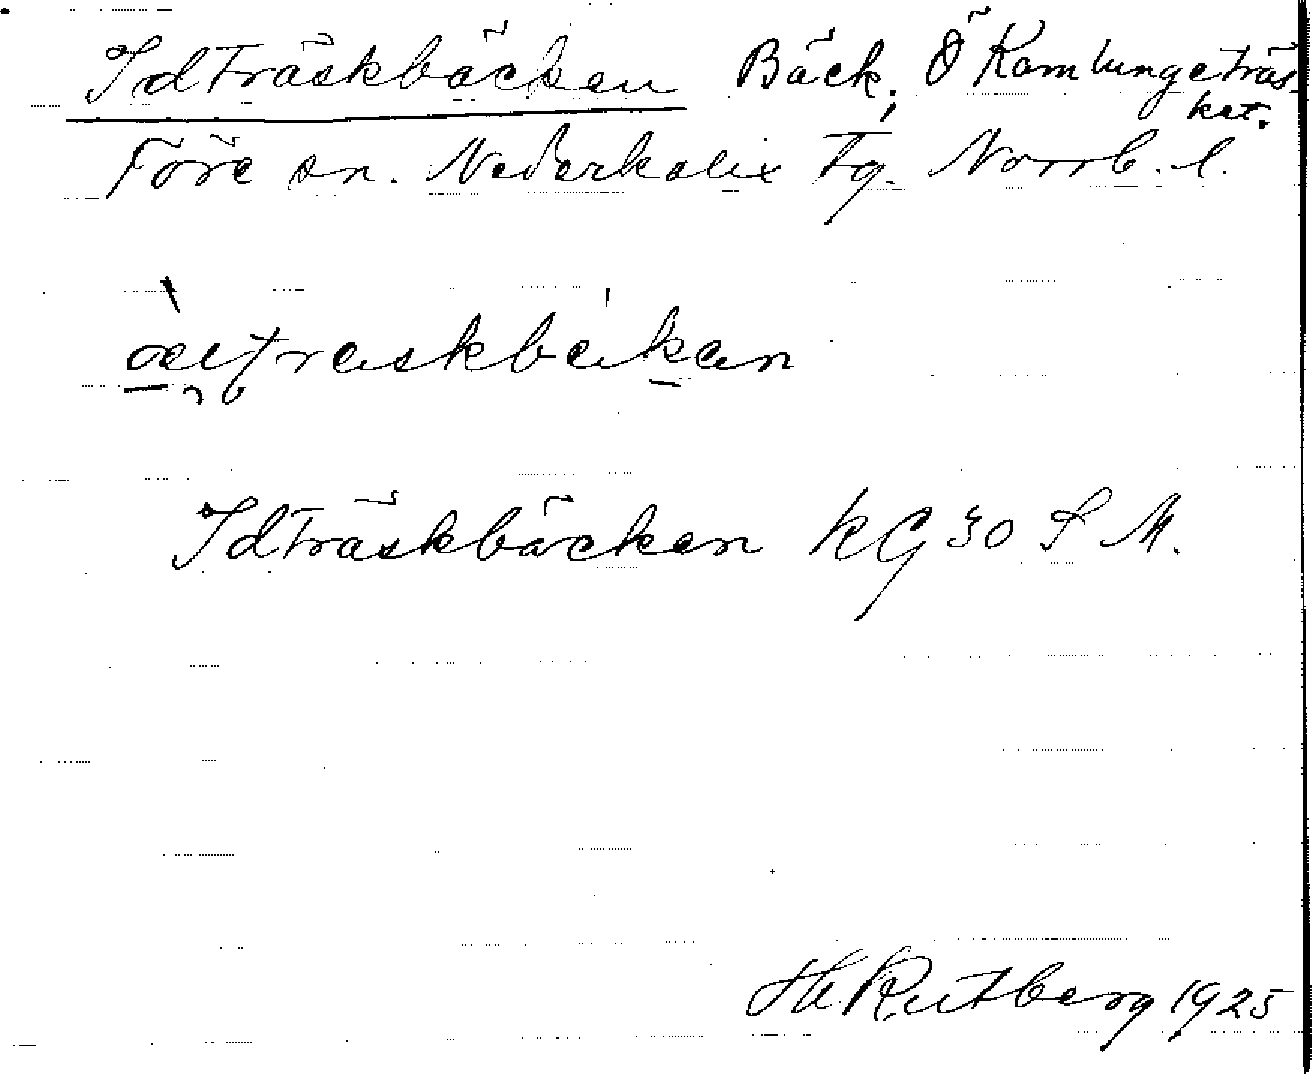 Idträskbäcken Bäck, Ö Kamlungeträs-
ket.
Före sn. Nederkalix Tg. Norrb. l.
Idträskbäcken KG 30 S M.
H. Rutberg 1925